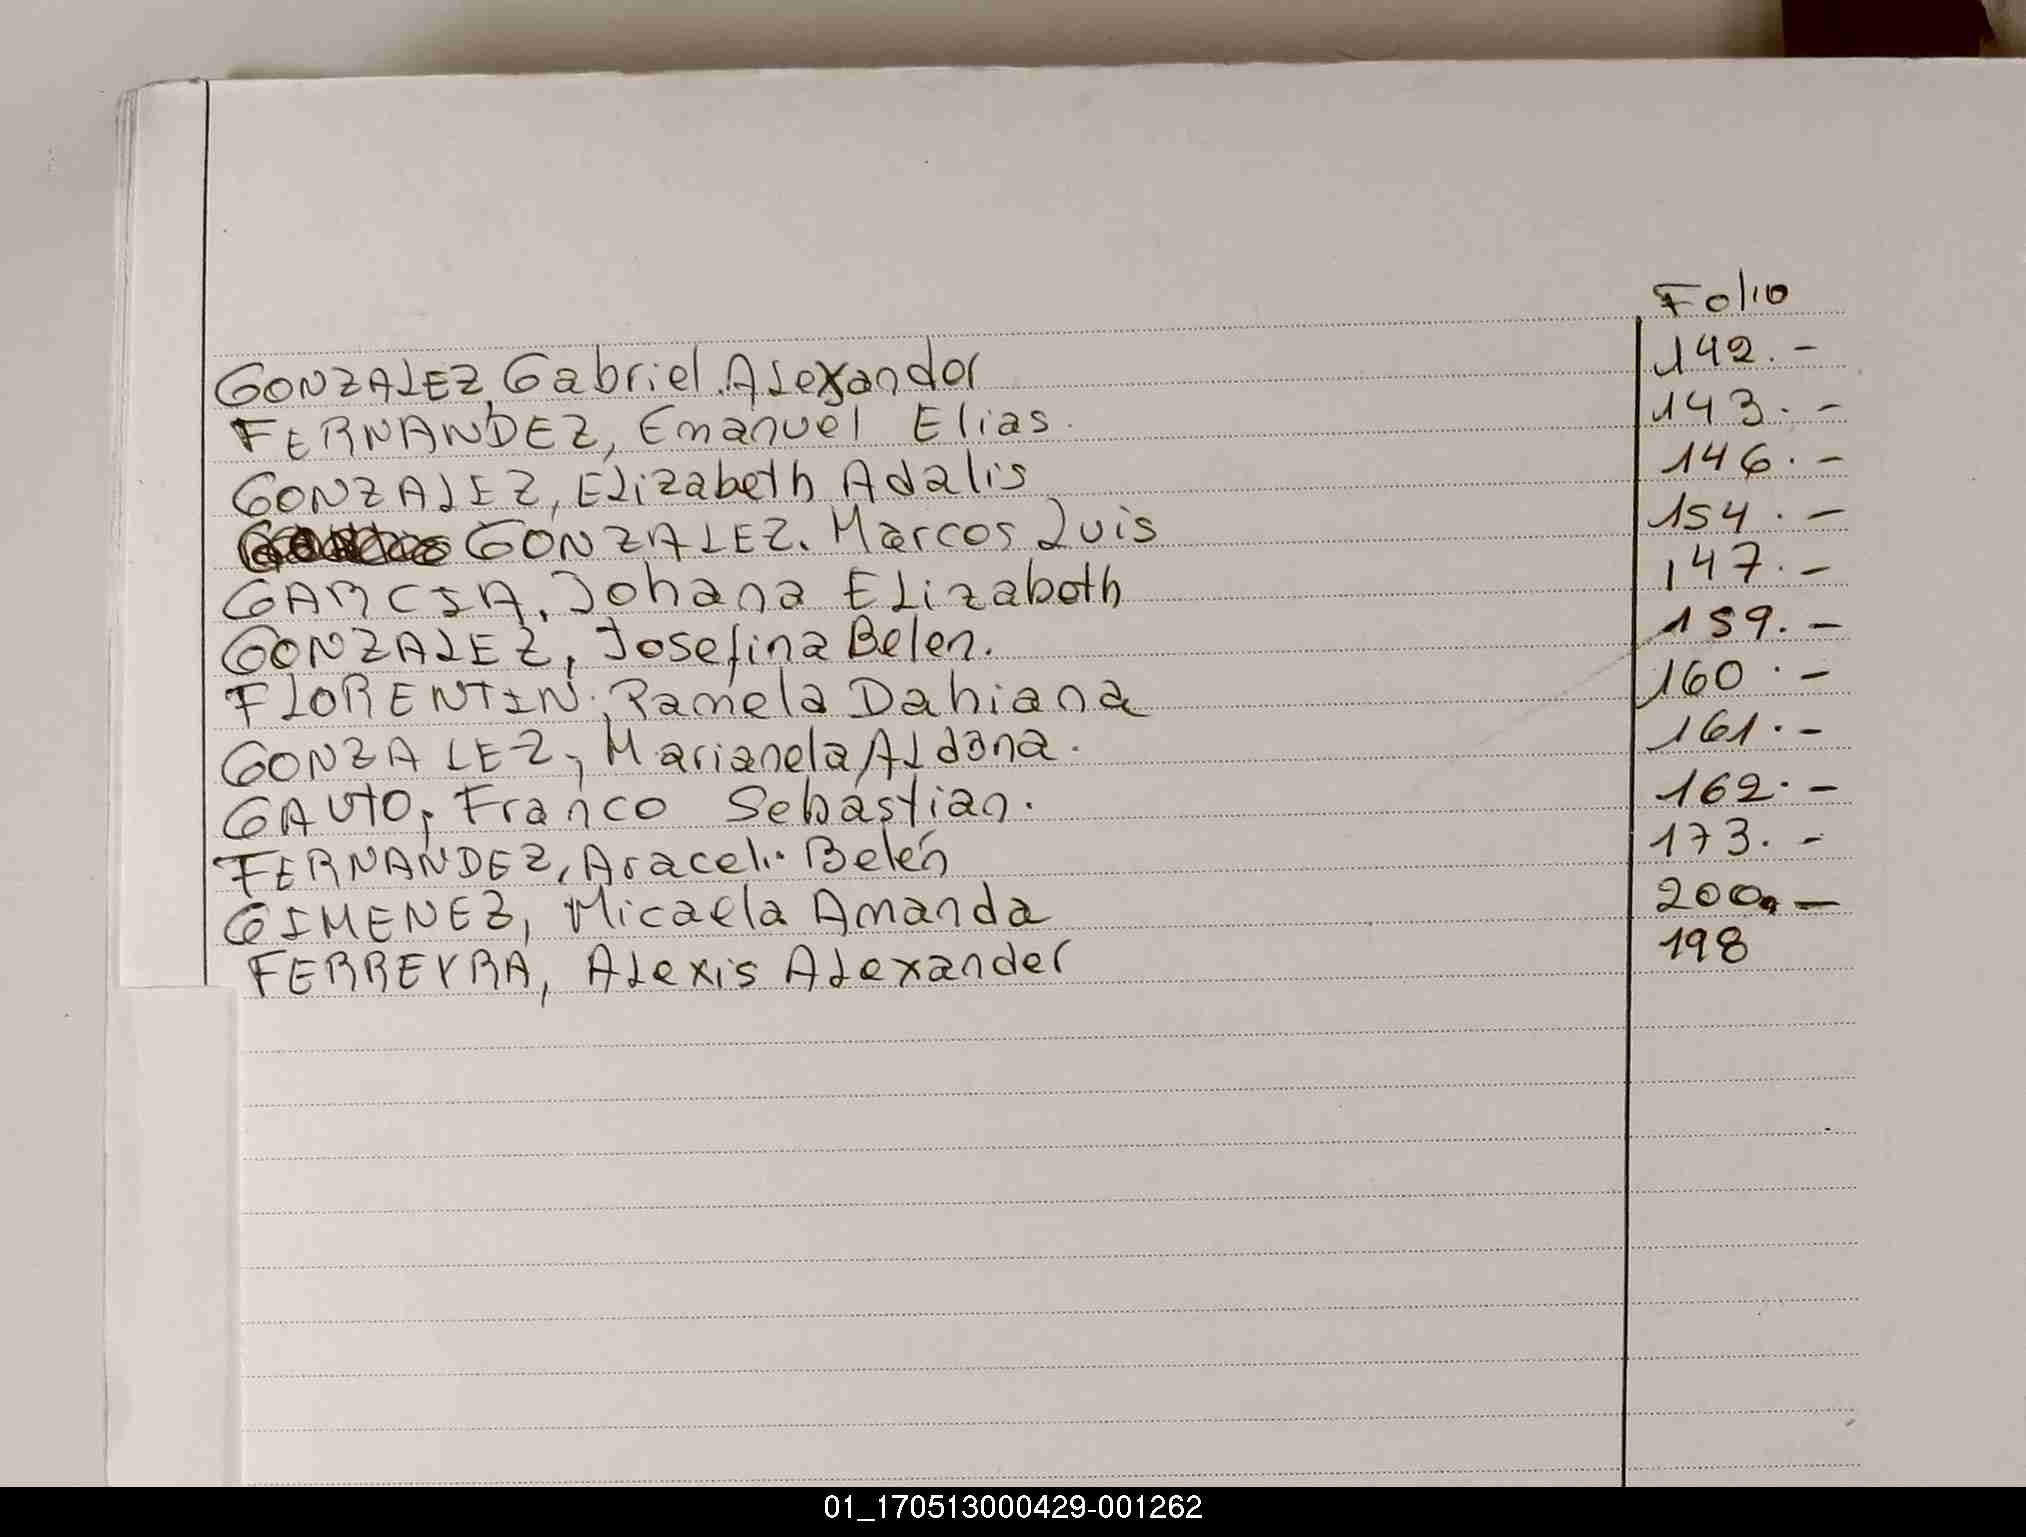 Folio
GONZALEZ, Gabriel Alexander 142.-
FERNANDEZ, Emanuel Elias. 143.-
GONZALEZ, Elizabeth Adalis 146.-
GONZALEZ. Marcos Luis 154.-
GARCIA, Johana Elizabeth 147.-
GONZALEZ, Josefina Belen. 159.-
FLORENTIN, Pamela Dahiana 160.-
GONZALEZ, Marianela Aldana. 161.-
GAUTO, Franco Sebastian. 162.-
FERNANDEZ, Araceli Belén 173.-
GIMENEZ, Micaela Amanda 200.-
FERREYRA, Alexis Alexander 198
01_170513000429-001262